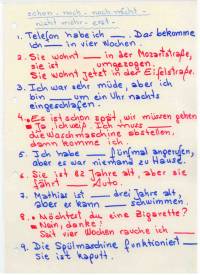 schon - noch - noch nicht -
nicht mehr - erst -
1. Telefon habe ich ___. Das bekomme
ich ___ in vier Wochen.
2. Sie wohnt ___ in der Mozartstraße,
sie ist ___ umgezogen.
Sie wohnt jetzt in der Eifelstraße.
3. Ich war sehr müde, aber ich
bin ___ um ein Uhr nachts
eingeschlafen.
4. • Es ist schon spät, wir müssen gehen
• Ja, ich weiß. Ich muss ___
die Waschmaschine abstellen,
dann komme ich.
5. Ich habe ___ fünfmal angerufen,
aber es war niemand zu Hause.
6. Sie ist 82 Jahre alt, aber sie
fährt ___ Auto.
7. Mathias ist ___ drei Jahre alt,
aber er kann ___ schwimmen.
8. • Möchtest du eine Zigarette?
• Nein, danke!
Seit vier Wochen rauche ich ___
9. Die Spülmaschine funktioniert ___
Sie ist kaputt.